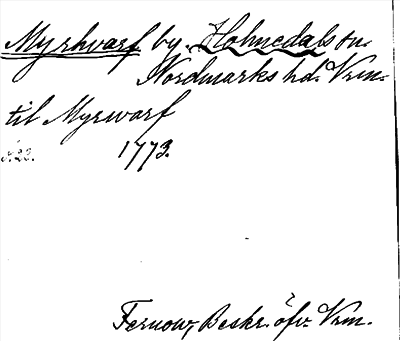 Myrhvarf by. Holmedals sn.
Nordmarks hd. Vrm.
til Myrwarf
s. 23. 1773.
Fernow, Beskr. öfv. Vrm.